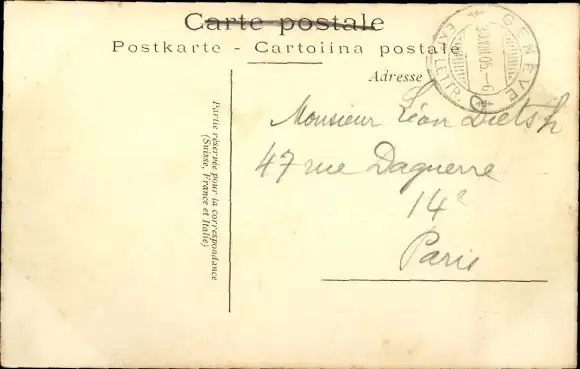 Carte postale
Postkarte - Cartoiina postale
Adresse
GENÈVE
EXP. LETTR.
Partie réservée pour la correspondance
(Suisse, France et Italie)
Monsieur Léon Dietsh
47 rue Daguerre
14e
Paris